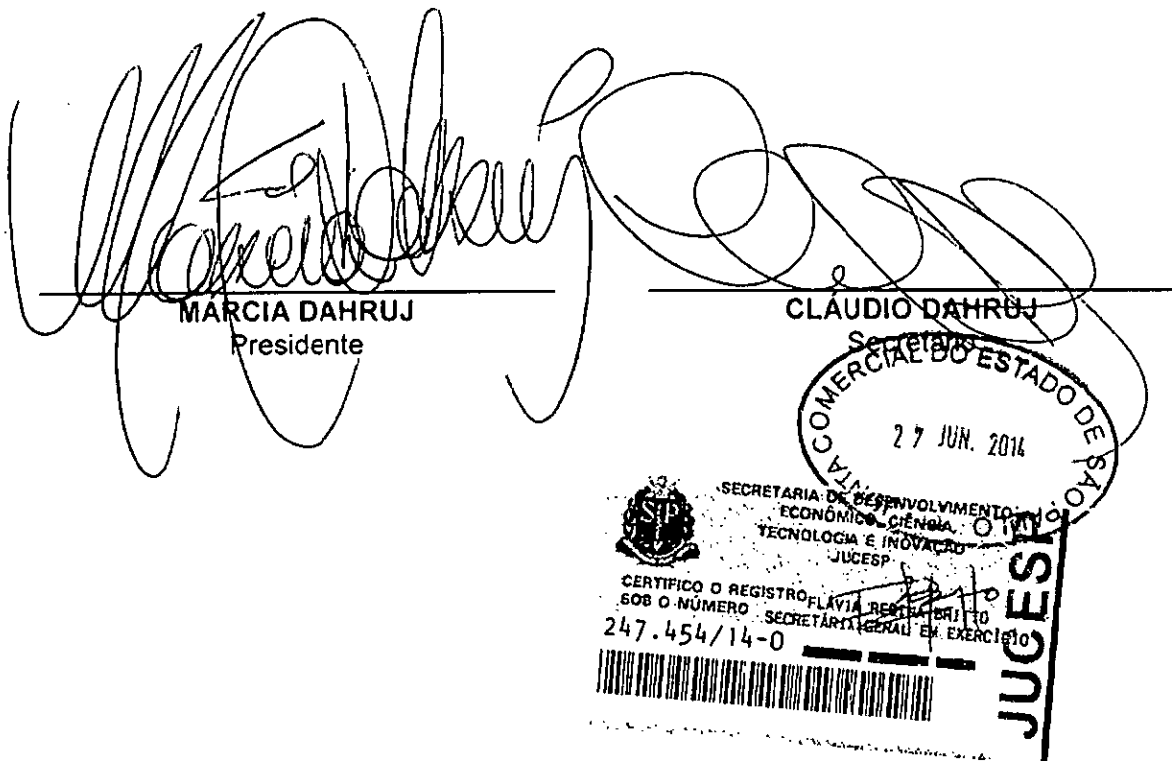 MÁRCIA DAHRUJ
Presidente
CLÁUDIO DAHRUJ
Secretário
JUNTA COMERCIAL DO ESTADO DE SÃO PAULO
27 JUN. 2014
SECRETARIA DE DESENVOLVIMENTO
ECONÔMICO, CIÊNCIA,
TECNOLOGIA E INOVAÇÃO
JUCESP
CERTIFICO O REGISTRO
SOB O NÚMERO
FLÁVIA REGINA BRITTO
SECRETÁRIA GERAL EM EXERCÍCIO
247.454/14-0
JUCESP